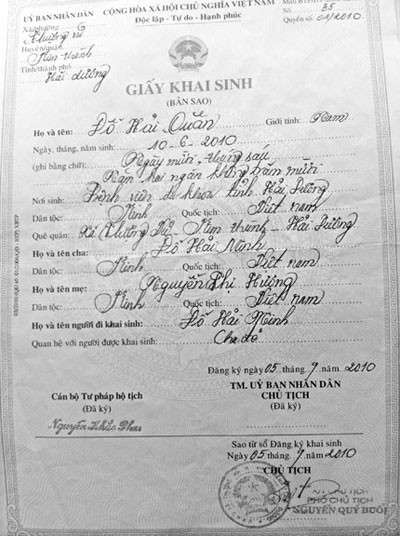 ỦY BAN NHÂN DÂN
CỘNG HÒA XÃ HỘI CHỦ NGHĨA VIỆT NAM
Độc lập - Tự do - Hạnh phúc
Số 35
Quyển số 01/2010
Xã/phường
Thượng Vũ
Huyện/quận
Kim Thành
Tỉnh/thành phố
Hải Dương
GIẤY KHAI SINH
(BẢN SAO)
Họ và tên: Đỗ Hải Quân Giới tính: Nam
Ngày, tháng, năm sinh: 10-6-2010
(ghi bằng chữ) Ngày mười, tháng sáu
Năm hai ngàn không trăm mười
Nơi sinh: Bệnh viện đa khoa tỉnh Hải Dương
Dân tộc: Kinh Quốc tịch: Việt Nam
Quê quán: Xã Thượng Vũ - Kim Thành - Hải Dương
Họ và tên cha: Đỗ Hải Ninh
Dân tộc: Kinh Quốc tịch: Việt Nam
Họ và tên mẹ: Nguyễn Thị Hường
Dân tộc: Kinh Quốc tịch: Việt Nam
Họ và tên người đi khai sinh: Đỗ Hải Ninh
Quan hệ với người được khai sinh: Cha đẻ
Đăng ký ngày 05 tháng 7 năm 2010
Cán bộ Tư pháp hộ tịch
(Đã ký)
Nguyễn Khắc
TM. UỶ BAN NHÂN DÂN
CHỦ TỊCH
(Đã ký)
Sao từ sổ Đăng ký khai sinh
Ngày 05 tháng 7 năm 2010
CHỦ TỊCH
KT CHỦ TỊCH
PHÓ CHỦ TỊCH
NGUYỄN QUÝ BUỔI